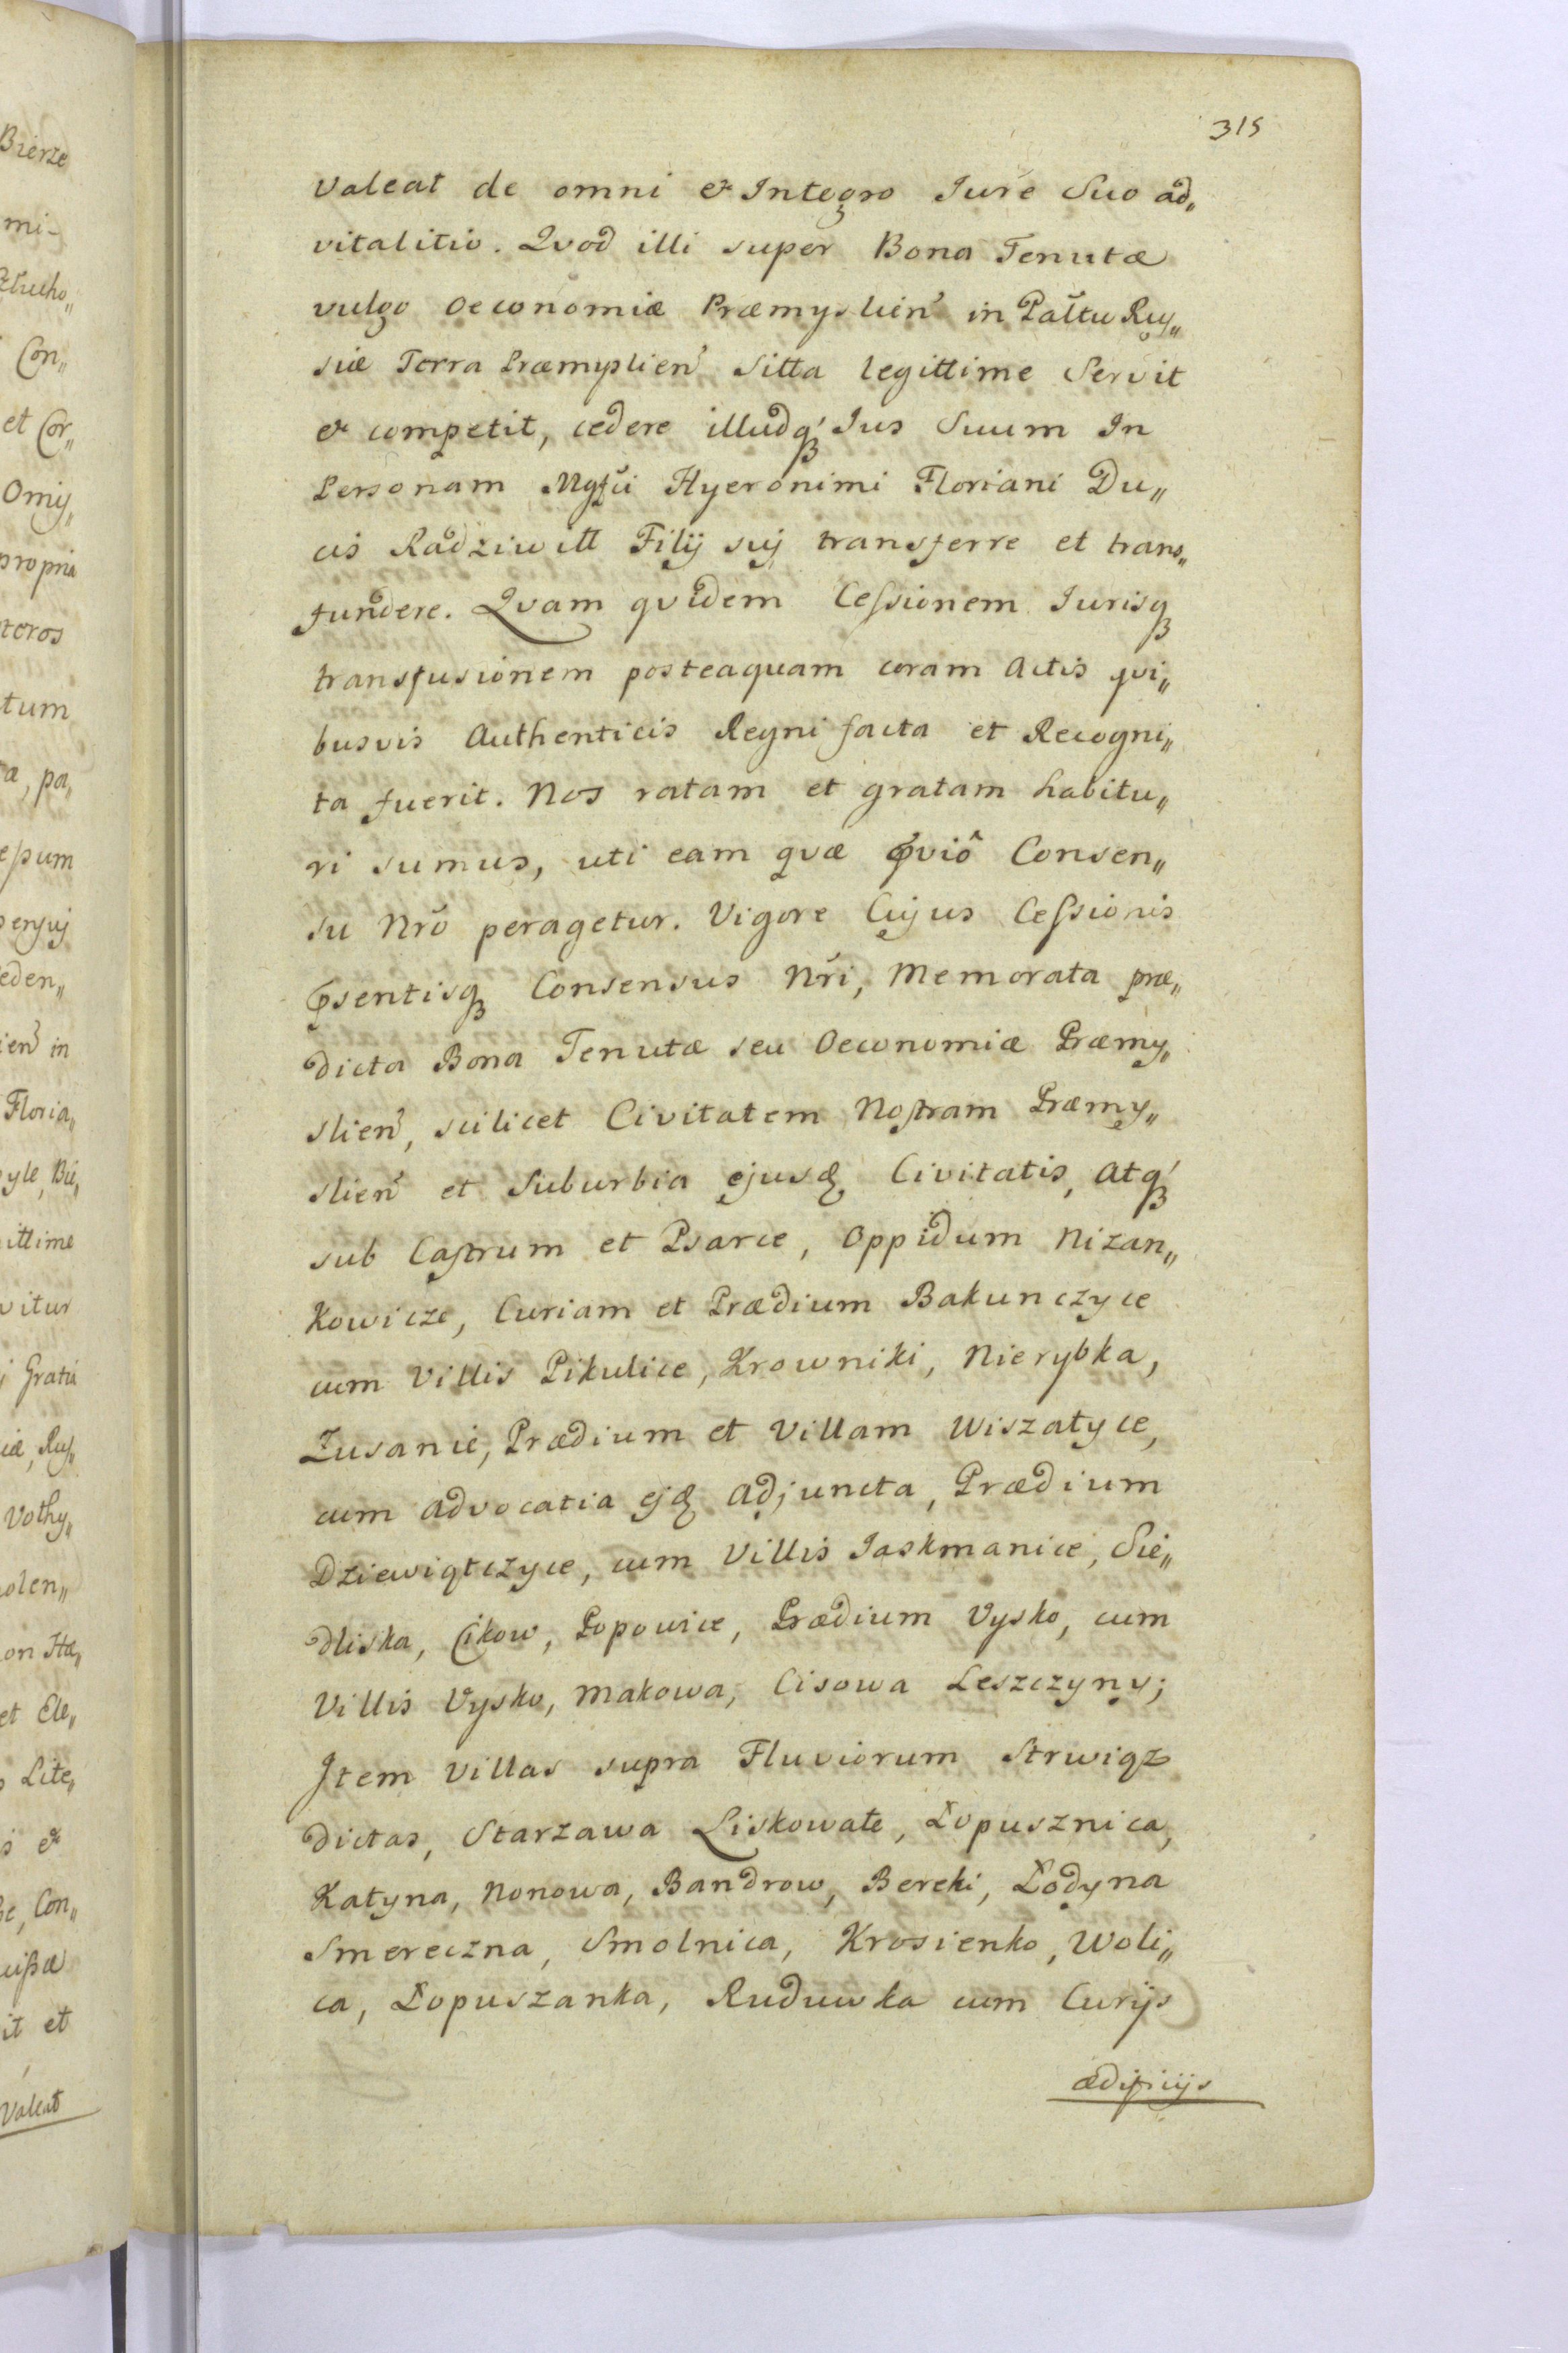 315
valeat de omni & Integro Iure Suo ad„
vitalitio. Qvod illi super Bona Tenutæ
vulgo Oeconomiæ Præmyslien̄ in Pałtu Rus„
siæ Terra Præmyslien̄ sitta legittime Servit
& competit, cedere illudq́ꝫ Ius Suum In
Personam Mgf̃ci Hyeronimi Floriani Du„
cis Radziwill Filij suj transferre et trans„
fundere. Qvam qvidem Cessionem Iurisqꝫ
transfusionem posteaquam coram Actis qvi„
busvis Authenticis Regni facta et Recogni„
ta fuerit. Nos ratam et gratam habitu„
ri sumus, uti eam qvæ ꝓviô Consen„
su Nr̃o peragetur. Vigore Cujus Cessionis
ꝓsentisqꝫ Consensus Nr̃i, Memorata præ„
dicta Bona Tenutæ seu Oeconomiæ Præmy„
slien̄, scilicet Civitatem Nostram Præmy„
slien̄ et Suburbia ejusđ Civitatis, atq́ꝫ
sub Castrum et Psarce, Oppidum Nizan„
kowicze, Curiam et Prædium Bakunczyce
cum Villis Pikulice, Krowniki, Nierybka,
Łusanie, Prædium et Villam Wiszatyce,
cum Advocatia ejđ Adjuncta, Prædium
Dziewiątczyce, cum Villis Jaskmanice, Sie„
dliska, Cikow, Popowice, Prædium Vysko, cum
Villis Vysko, Makowa, Cisowa Leszczyny;
Item Villas supra Fluviorum Strwiąz
dictas, Starzawa Liskowate, Łopusznica,
Katyna, Nonowa, Bandrow, Bereki, Łodyna
Smereczna, Smolnica, Krosienko, Woli„
ca, Łopuszanka, Ruduwka cum Curijs
ædificijs